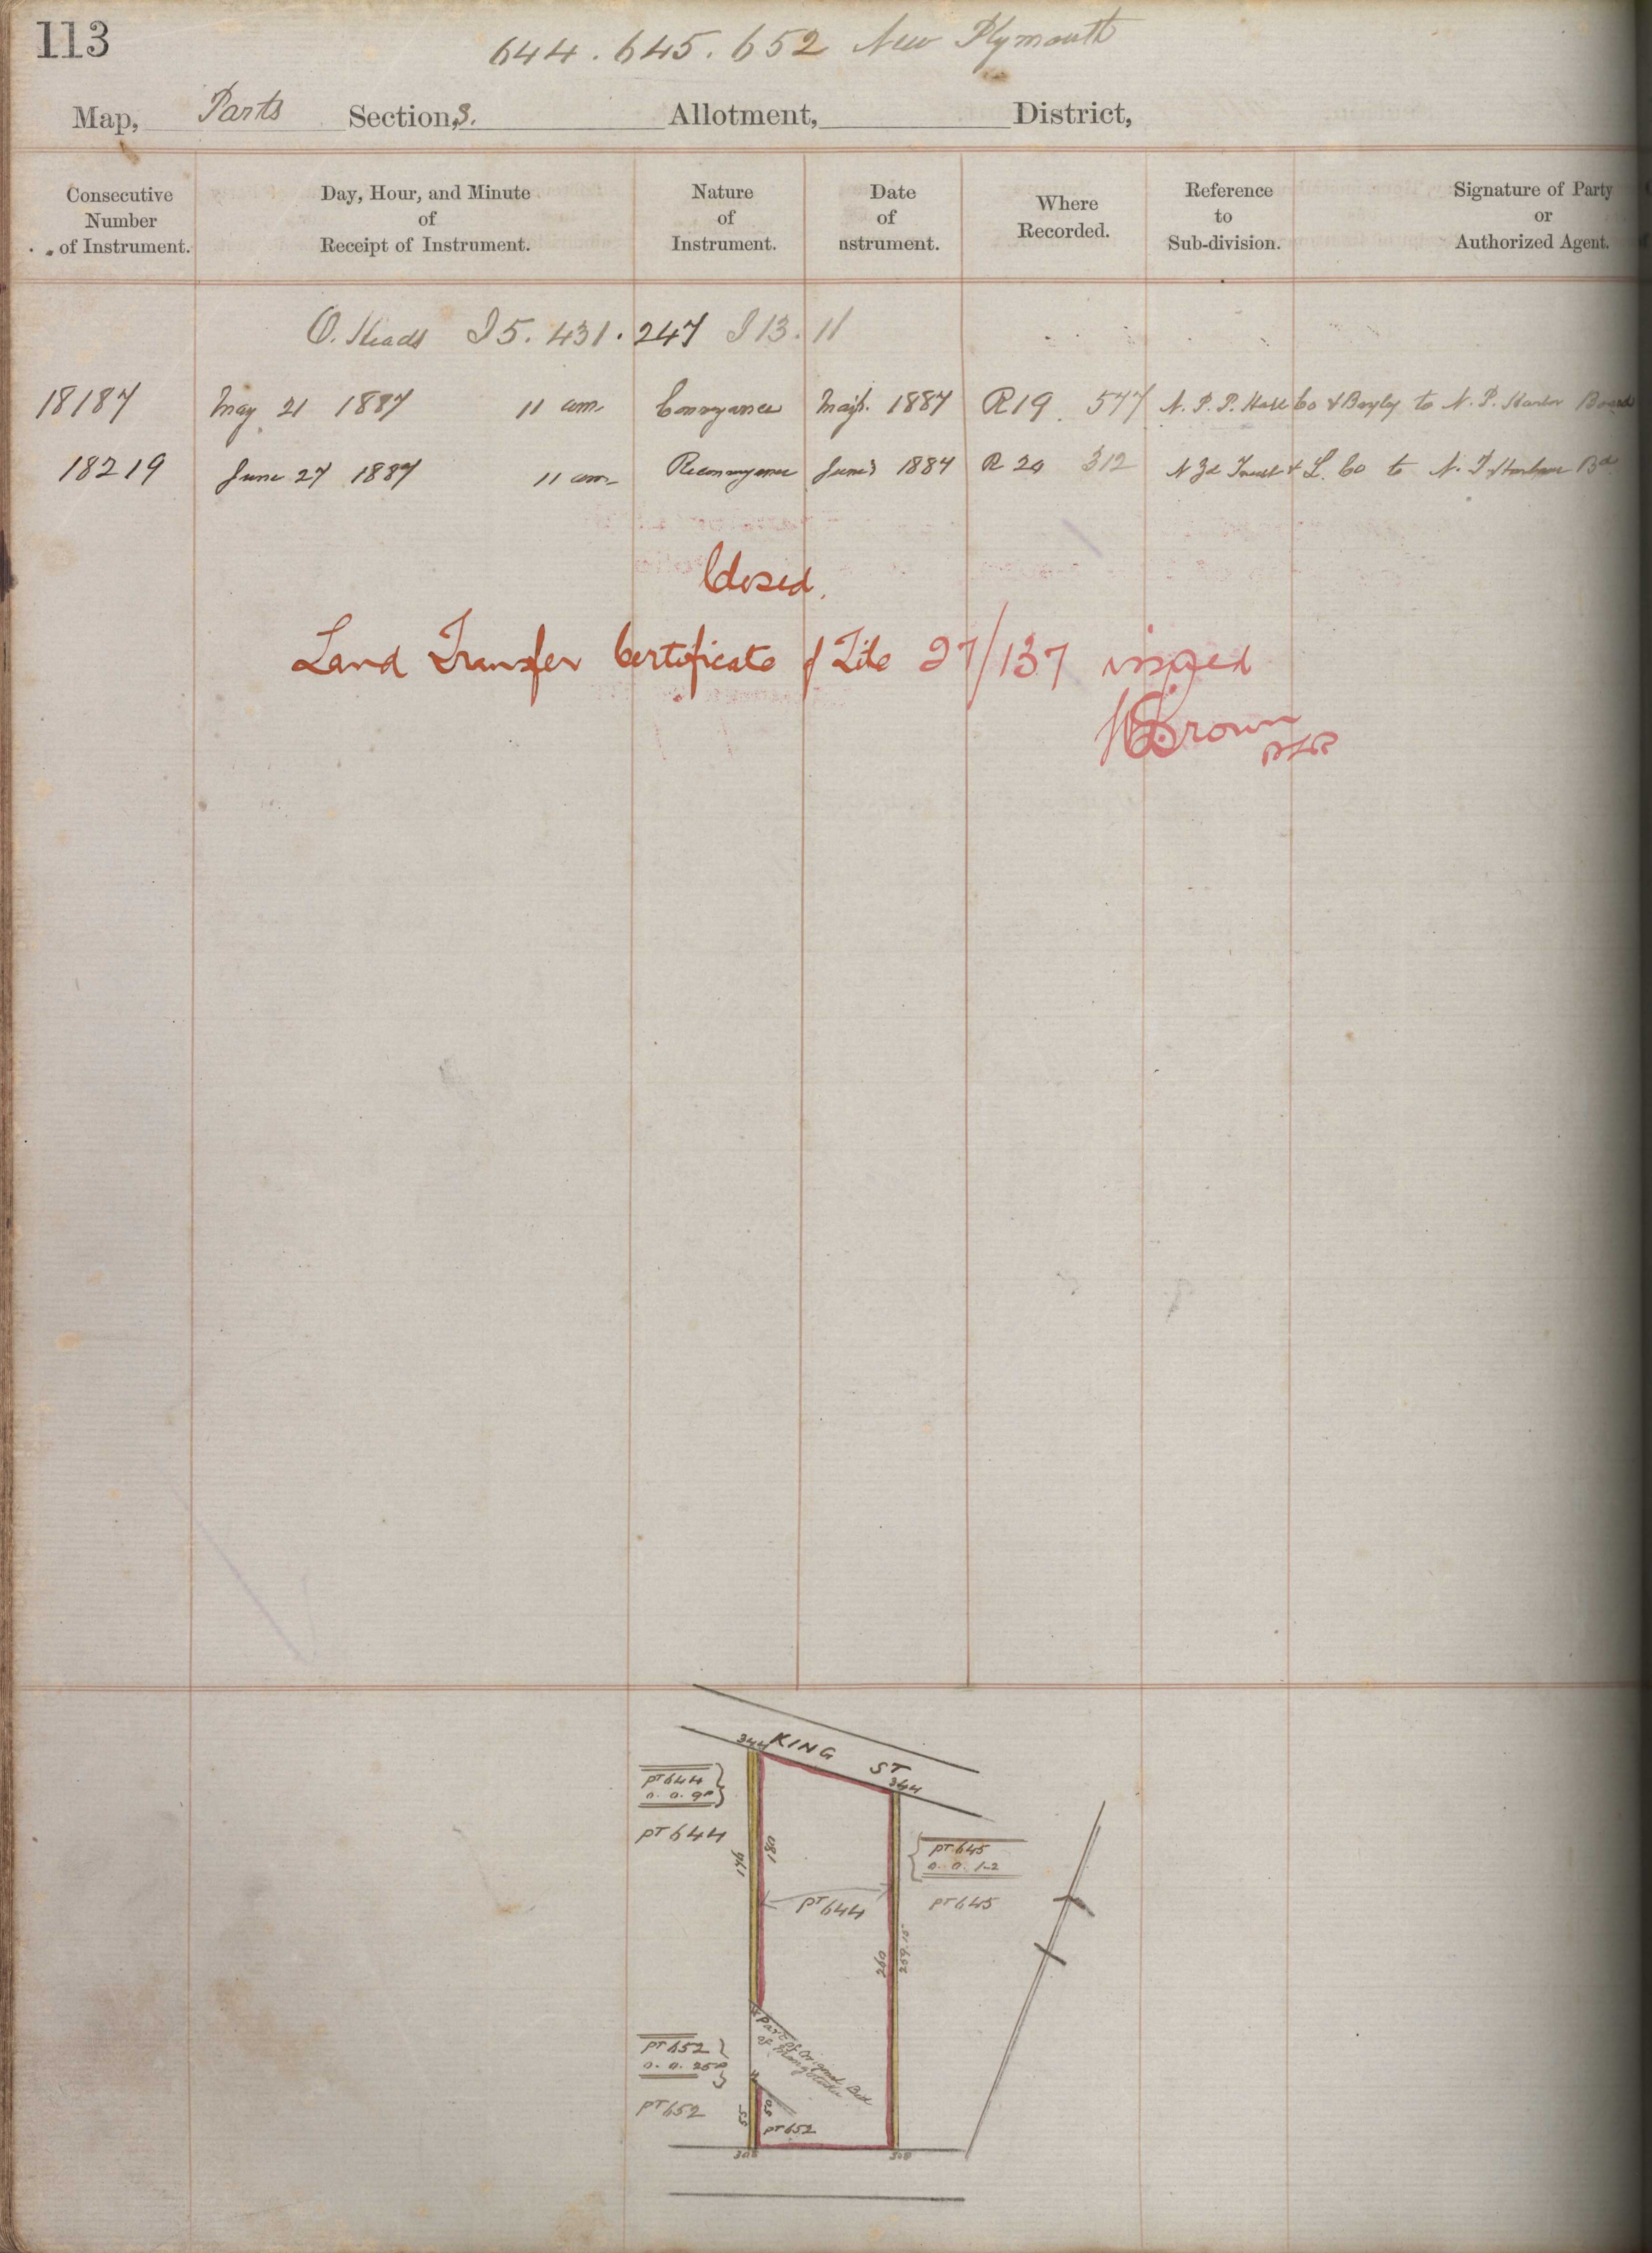 113
644. 645. 652 New Plymouth
Map, Parts Section,s. Allotment, District,
Consecutive Number of Instrument.
Day, Hour, and Minute of Receipt of Instrument.
Nature of Instrument.
Date of nstrument.
Where Recorded.
Reference to Sub-division.
Signature of Party or Authorized Agent.
O. Heads I 5. 431. 247 I 13. 11
18187 May 21 1887 11 am Conveyance May 1887 R19. 577 N. P. P. Co & Bayly to N. P. Harbor Board
18219 June 27 1887 11 am Reconveyance June 1887 R 20 312 N Zd Trust & L. Co to N. P Harbour Bd
Closed.
Land Transfer Certificate of Title 27/137 issued
Brown
DLR
344 KING ST 344
PT 644
0. 0. 9P
PT 644
196
180
PT 645
0. 0. 1.2
PT 644
PT 645
260
259.15
Part of Original Bed
of Mangotuku
PT 652
0. 0. 25P
PT 652
55
50
PT 652
308
308